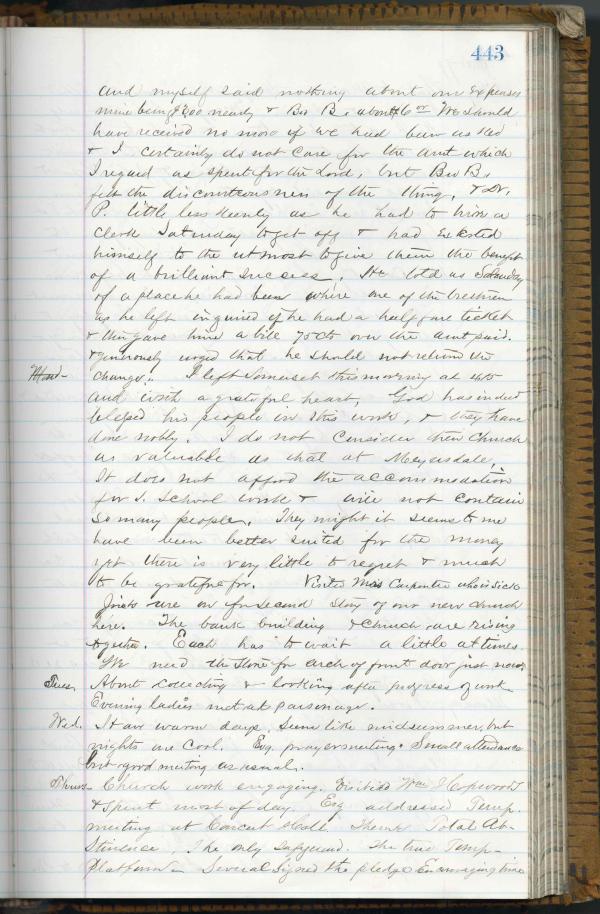 443
and myself said nothing about our expenses
mine being $200 nearly & Bro B. about $6 or We should
have received no more if we had been asked
& I certainly do not care for the amt which
I regard as spent for the Lord, but Bro B.
felt the discourteousness of the thing, & Dr.
P. little less keenly as he had to hire a
clerk Saturday to get off & had exerted
himself to the utmost to give them the benefit
of a brilliant success. He told us Saturday
of a place he had been where one of the brethren
as he left inquired if he had a half fare ticket
& then gave him a bill 75 cts over the amt paid.
& generously urged that he should not return the
Mond- change. I left Somerset this morning at
and with a grateful heart, God has indeed
blessed his people in this work, & they have
done nobly. I do not consider their church
as valuable as that at Meyersdale.
It does not afford the accommodation
for S. School work & will not contain
so many people. They might it seems to me
have been better suited for the money
yet there is very little to regret & much
to be grateful for. Visited Mrs Carpenter who is sick
Joists are on for second story of our new church
here. The bank building & church are rising
together. Each has to wait a little at times.
We need the stone for arch of front door just now.
Tues. About collecting & looking after progress of work.
Evening ladies met at parsonage.
Wed. Have warm days. Seem like midsummer, but
nights are cool. Evg. prayermeeting. Small attendance
but good meeting as usual.
Thurs- Church work engaging. Visited Wm Hopwood
& spent most of day. Evg addressed Temp.
meeting at Concert Hall. Theme Total Ab-
stinence. The only safeguard. The true Temp-
Platform- Several signed the pledge Encouraging time